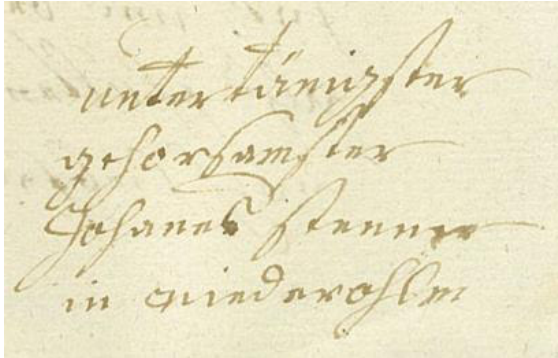 untertänigster
gehorsamster
Johanes Stenner
in niederohlm